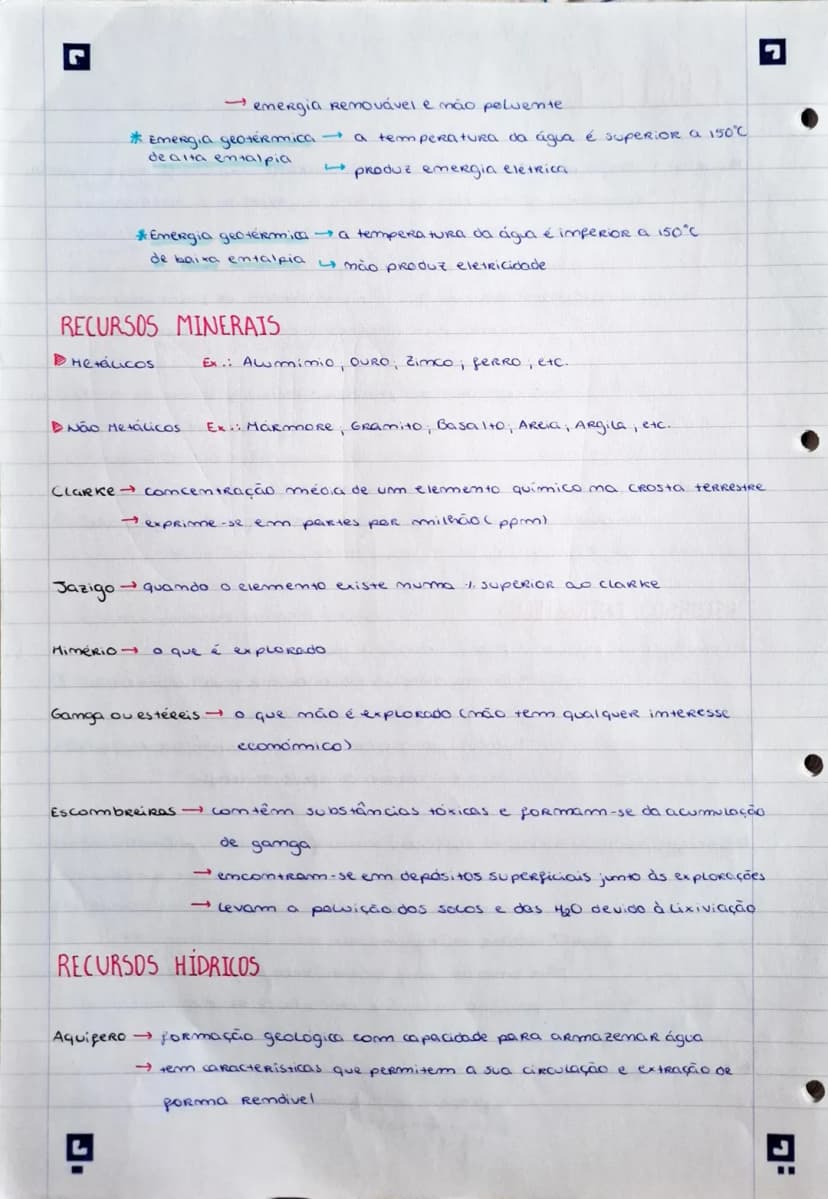 → energia removável e não poluente
* Energia geotérmica → a temperatura da água é superior a 150°C
de alta entalpia
↳ produz energia elétrica
* Energia geotérmica → a temperatura da água é inferior a 150°C
de baixa entalpia ↳ não produz eletricidade
RECURSOS MINERAIS
▷ Metálicos Ex.: Alumínio, Ouro, Zinco, ferro, etc.
▷ Não Metálicos Ex.: Mármore, Granito, Basalto, Areia, Argila, etc.
Clarke → concentração média de um elemento químico na crosta terrestre
→ exprime-se em partes por milhão (ppm)
Jazigo → quando o elemento existe numa % superior ao clarke
Minério → o que é explorado
Ganga ou estéreis → o que não é explorado (não tem qualquer interesse
económico)
Escombreiras → contêm substâncias tóxicas e formam-se da acumulação
de ganga
→ encontram-se em depósitos superficiais junto às explorações
→ levam a poluição dos solos e das H₂O devido à lixiviação
RECURSOS HÍDRICOS
Aquífero → formação geológica com capacidade para armazenar água
→ tem características que permitem a sua circulação e extração de
forma rendível